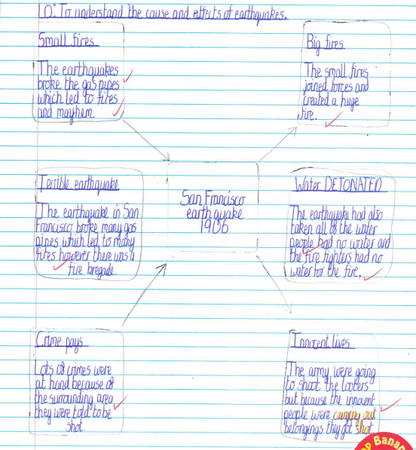 LO: To understand the cause and effects of earthquakes.
Small fires
The earthquakes
broke the gas pipes
which led to fires
and mayhem.
Big fires
The small fires
joined forces and
created a huge
fire.
Terrible earthquake
The earthquake in San
Francisco broke many gas
pipes which led to many
fires however there was a
fire bregade.
San Francisco
earthquake
1906
Water DETONATED
The earthquake had also
taken all of the water
people had no water and
the fire fighters had no
water for the fire.
Crime pays
Lots of crimes were
at hand because of
the surrounding area
they were told to be
shot.
Innocent lives
The army were going
to shoot the looters
but because the innocent
people were carrying out
belongings they got shot.
Banana